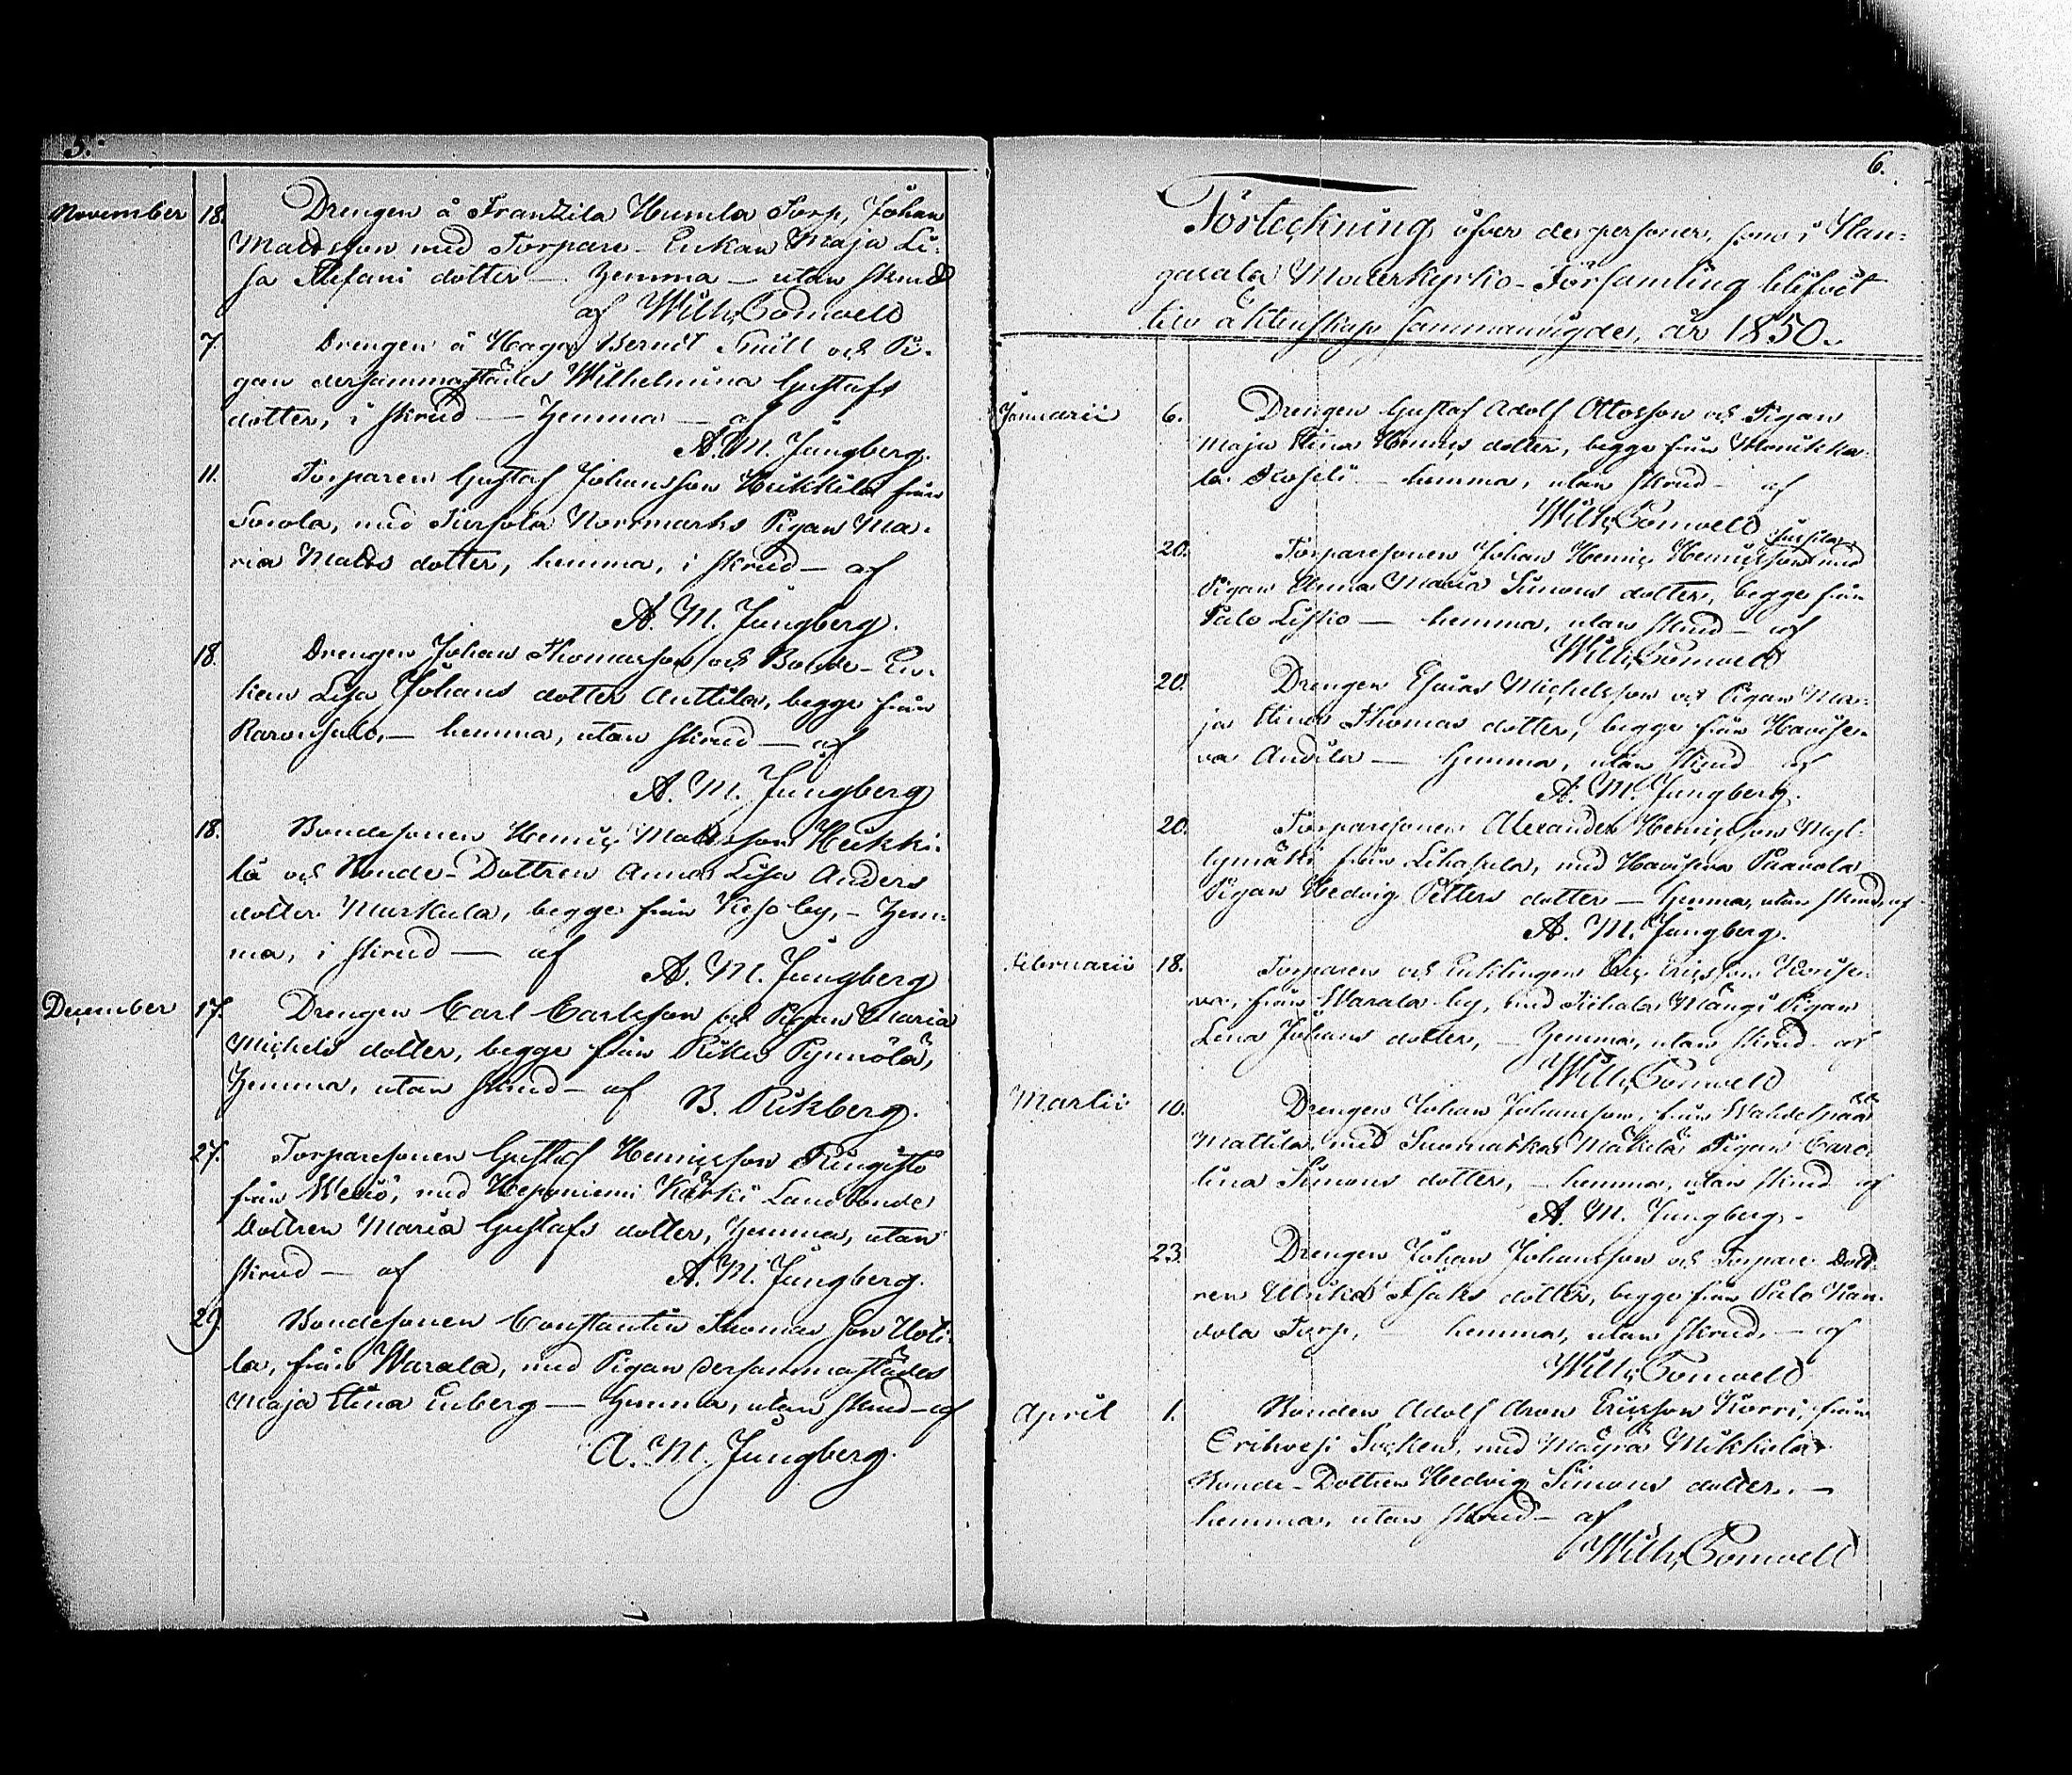 5.
November 18. Drengen å Frantzila Humla Torp, Johan
Matsson med Torpare-Enkan Maja Li-
sa Stefani dotter — hemma — utan skrud
af Wilh. Bomvell
7. Drengen å Haga Berndt Snäll och Pi-
gan dersammastädes Wilhelmina Gustafs
dotter, i skrud — hemma — af
A. M. Jungberg.
11. Torparen Gustaf Johansson Heikkilä från
Toiola, med Tursola Norrmarks Pigan Ma-
ria Mats dotter, hemma, i skrud — af
A. M. Jungberg.
18. Drengen Johan Thomasson och Bonde-En-
kan Lisa Johans dotter Anttila, begge från
Raronsalo, — hemma, utan skrud — af
A. M. Jungberg
18. Bondesonen Henric Matsson Heikki-
lä och Bonde-Dottren Anna Lisa Anders
dotter Markula, begge från Keso by, — hem-
ma, i skrud — af
A. M. Jungberg
December 17. Drengen Carl Carlsson och Pigan Maria
Michels dotter, begge från Riku Pynnölä,
hemma, utan skrud — af B. Rikberg.
27. Torparesonen Gustaf Henricsson Ringisto
från Wehiö, med Heponiemi Kärki Landbonde
Dottren Maria Gustafs dotter, hemma, utan
skrud — af A. M. Jungberg.
29. Bondesonen Constantin Thomas son Uoti-
la, från Warala, med Pigan dersammastädes
Maja Stina Enberg — hemma, utan skrud — af
A. M. Jungberg.
6.
Förteckning öfver de personer, som i Kan-
gasala Moderkyrko-Församling blifvit
till äktenskap sammanvigde, år 1850.
Januarii 6. Drengen Gustaf Adolf Ottosson och Pigan
Maja Stina Henrics dotter, begge från Wanikka-
la — hemma, utan skrud — af
Wilh. Bomvell
20. Torparesonen Johan Henric Henricsson med
Pigan Anna Maria Simons dotter, begge från
Palo Lisko — hemma, utan skrud — af
Wilh. Bomvell
20. Drengen Esaias Michelsson och Pigan Ma-
ja Stina Thomas dotter, begge från Havise-
va Anvila — hemma, utan skrud af
A. M. Jungberg.
20. Torparesonen Alexander Henricsson Myl-
lymäki från Lihasula, med Haviseva Paavola
Pigan Hedvig Petters dotter — hemma, utan skrud, af
A. M. Jungberg.
Februarii 18. Torparen och Enklingen Eric Ericsson
från Warala by, med Rihala Mängi Pigan
Lena Johans dotter, — hemma, utan skrud — af
Wilh. Bomvell
Martii 10. Drengen Johan Johansson, från Wahdespää
Mattila, med Suomatka Mäkilä Pigan Caro-
lina Simons dotter, — hemma, utan skrud af
A. M. Jungberg.
23. Drengen Johan Johansson och Torpare Dott-
ren Ulrika Isaks dotter, begge från Palo Kan-
dola Torp, — hemma, utan skrud, — af
Wilh. Bomvell
April 1. Bonden Adolf Aron Ericsson Körri, från
Orihvesi Socken, med Mäyrä Mikkula
Bonde-Dottren Hedvig Simons dotter. —
hemma, utan skrud — af
Wilh. Bomvell